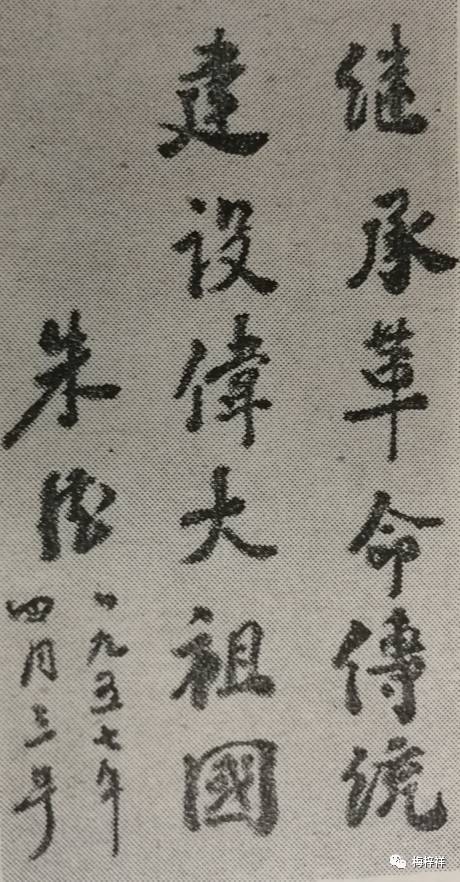 继承革命傳统
建设偉大祖國
朱德
一九五七年
四月三号
梅梓祥